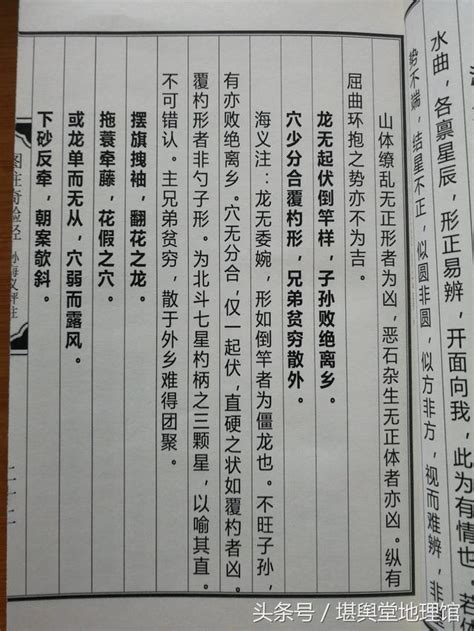 水曲，各禀星辰，形正易辨，开面向我，此为有情也，若体
势不端，结星不正，似圆非圆，似方非方，视而难辨，非
山体缭乱无正形者为凶，恶石杂生无正体者亦凶。纵有
屈曲环抱之势亦不为吉。
龙无起伏倒竿样，子孙败绝离乡。
穴少分合覆杓形，兄弟贫穷散外。
海义注：龙无委婉，形如倒竿者为僵龙也。不旺子孙，
有亦败绝离乡。穴无分合，仅一起伏，直硬之状如覆杓者凶。
覆杓形者非勺子形。为北斗七星杓柄之三颗星，以喻其直。
不可错认。主兄弟贫穷，散于外乡难得团聚。
摆旗拽袖，翻花之龙。
拖蓑牵藤，花假之穴。
或龙单而无从，穴弱而露风。
下砂反牵，朝案欹斜。
图注奇验经 孙海义评注
头条号/堪舆堂地理馆